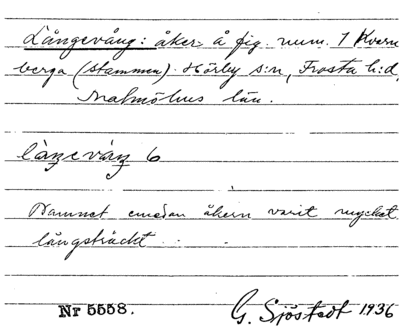 Långevång: åker å fig. num. 1 Kvern
berga (stammen). Hörby s:n, Frosta h:d,
Malmöhus län.
låŋevåŋ 6
Namnet emedan åkern varit mycket
långsträckt
Nr 5558.
G. Sjöstedt 1936